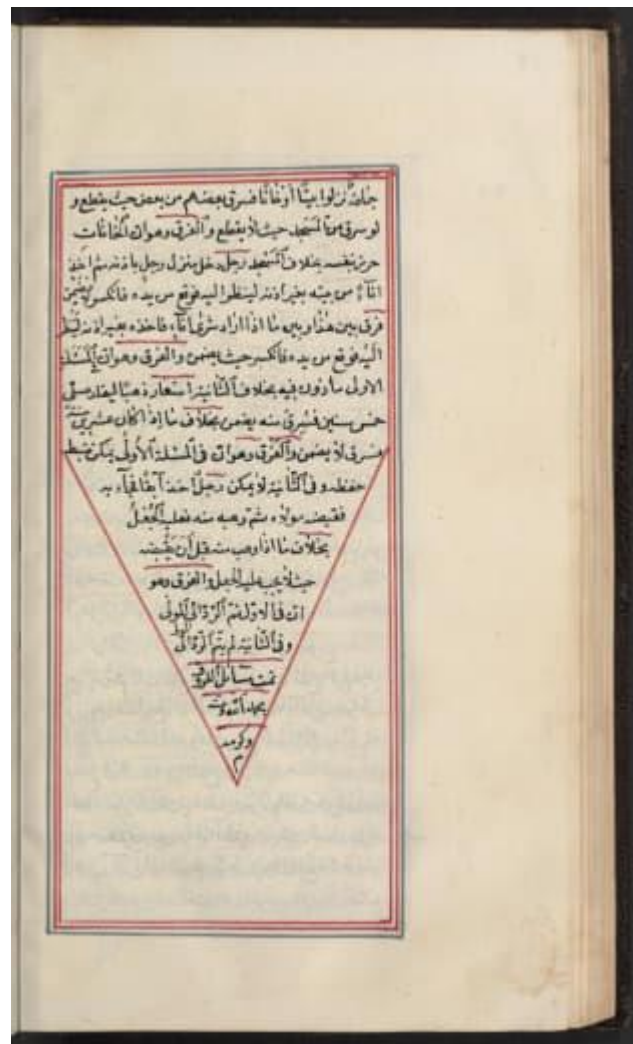 جماعة نزلوا بيتًا أو خانًا فسرق بعضهم من بعض حيث يقطع و
لو سرق من المسجد حيث لا يقطع والفرق وهو ان الخانات
حرز بنفسه بخلاف المسجد رجل دخل بمنزل رجل باذنه ثم اخذ
اناءً من بيته بغير اذنه لينظر اليه فوقع من يده فانكسر لا يضمن
فرق بين هذا وبين ما اذا اراد شرى اناء فاخذه بغير اذنه لينظر
اليه فوقع من يده فانكسر حيث يضمن والفرق وهو ان المسئلة
الاولى مأذون فيه بخلاف الثانية استعار ذهبا ليقلد صبى
خمس سنين فسرق منه يضمن بخلاف ما إذا كان عشر سنة
فسرق لا يضمن والفرق وهو ان فى المسئلة الأولى يمكن
حفظه وفى الثانية لا يمكن رجل اخذ آبقا فجآء به
فقبضه مولاه ثم وهبه منه فعليه الجُعل
بخلاف ما اذا وهب منه قبل أن يقبضه
حيث لا يجب عليه الجعل والفرق وهو
ان فى الاول تم الرد الى المولى
وفى الثانية لم يتم الرد الى
تمت مسائل الفروق
بحمد الله
وكرمه
م